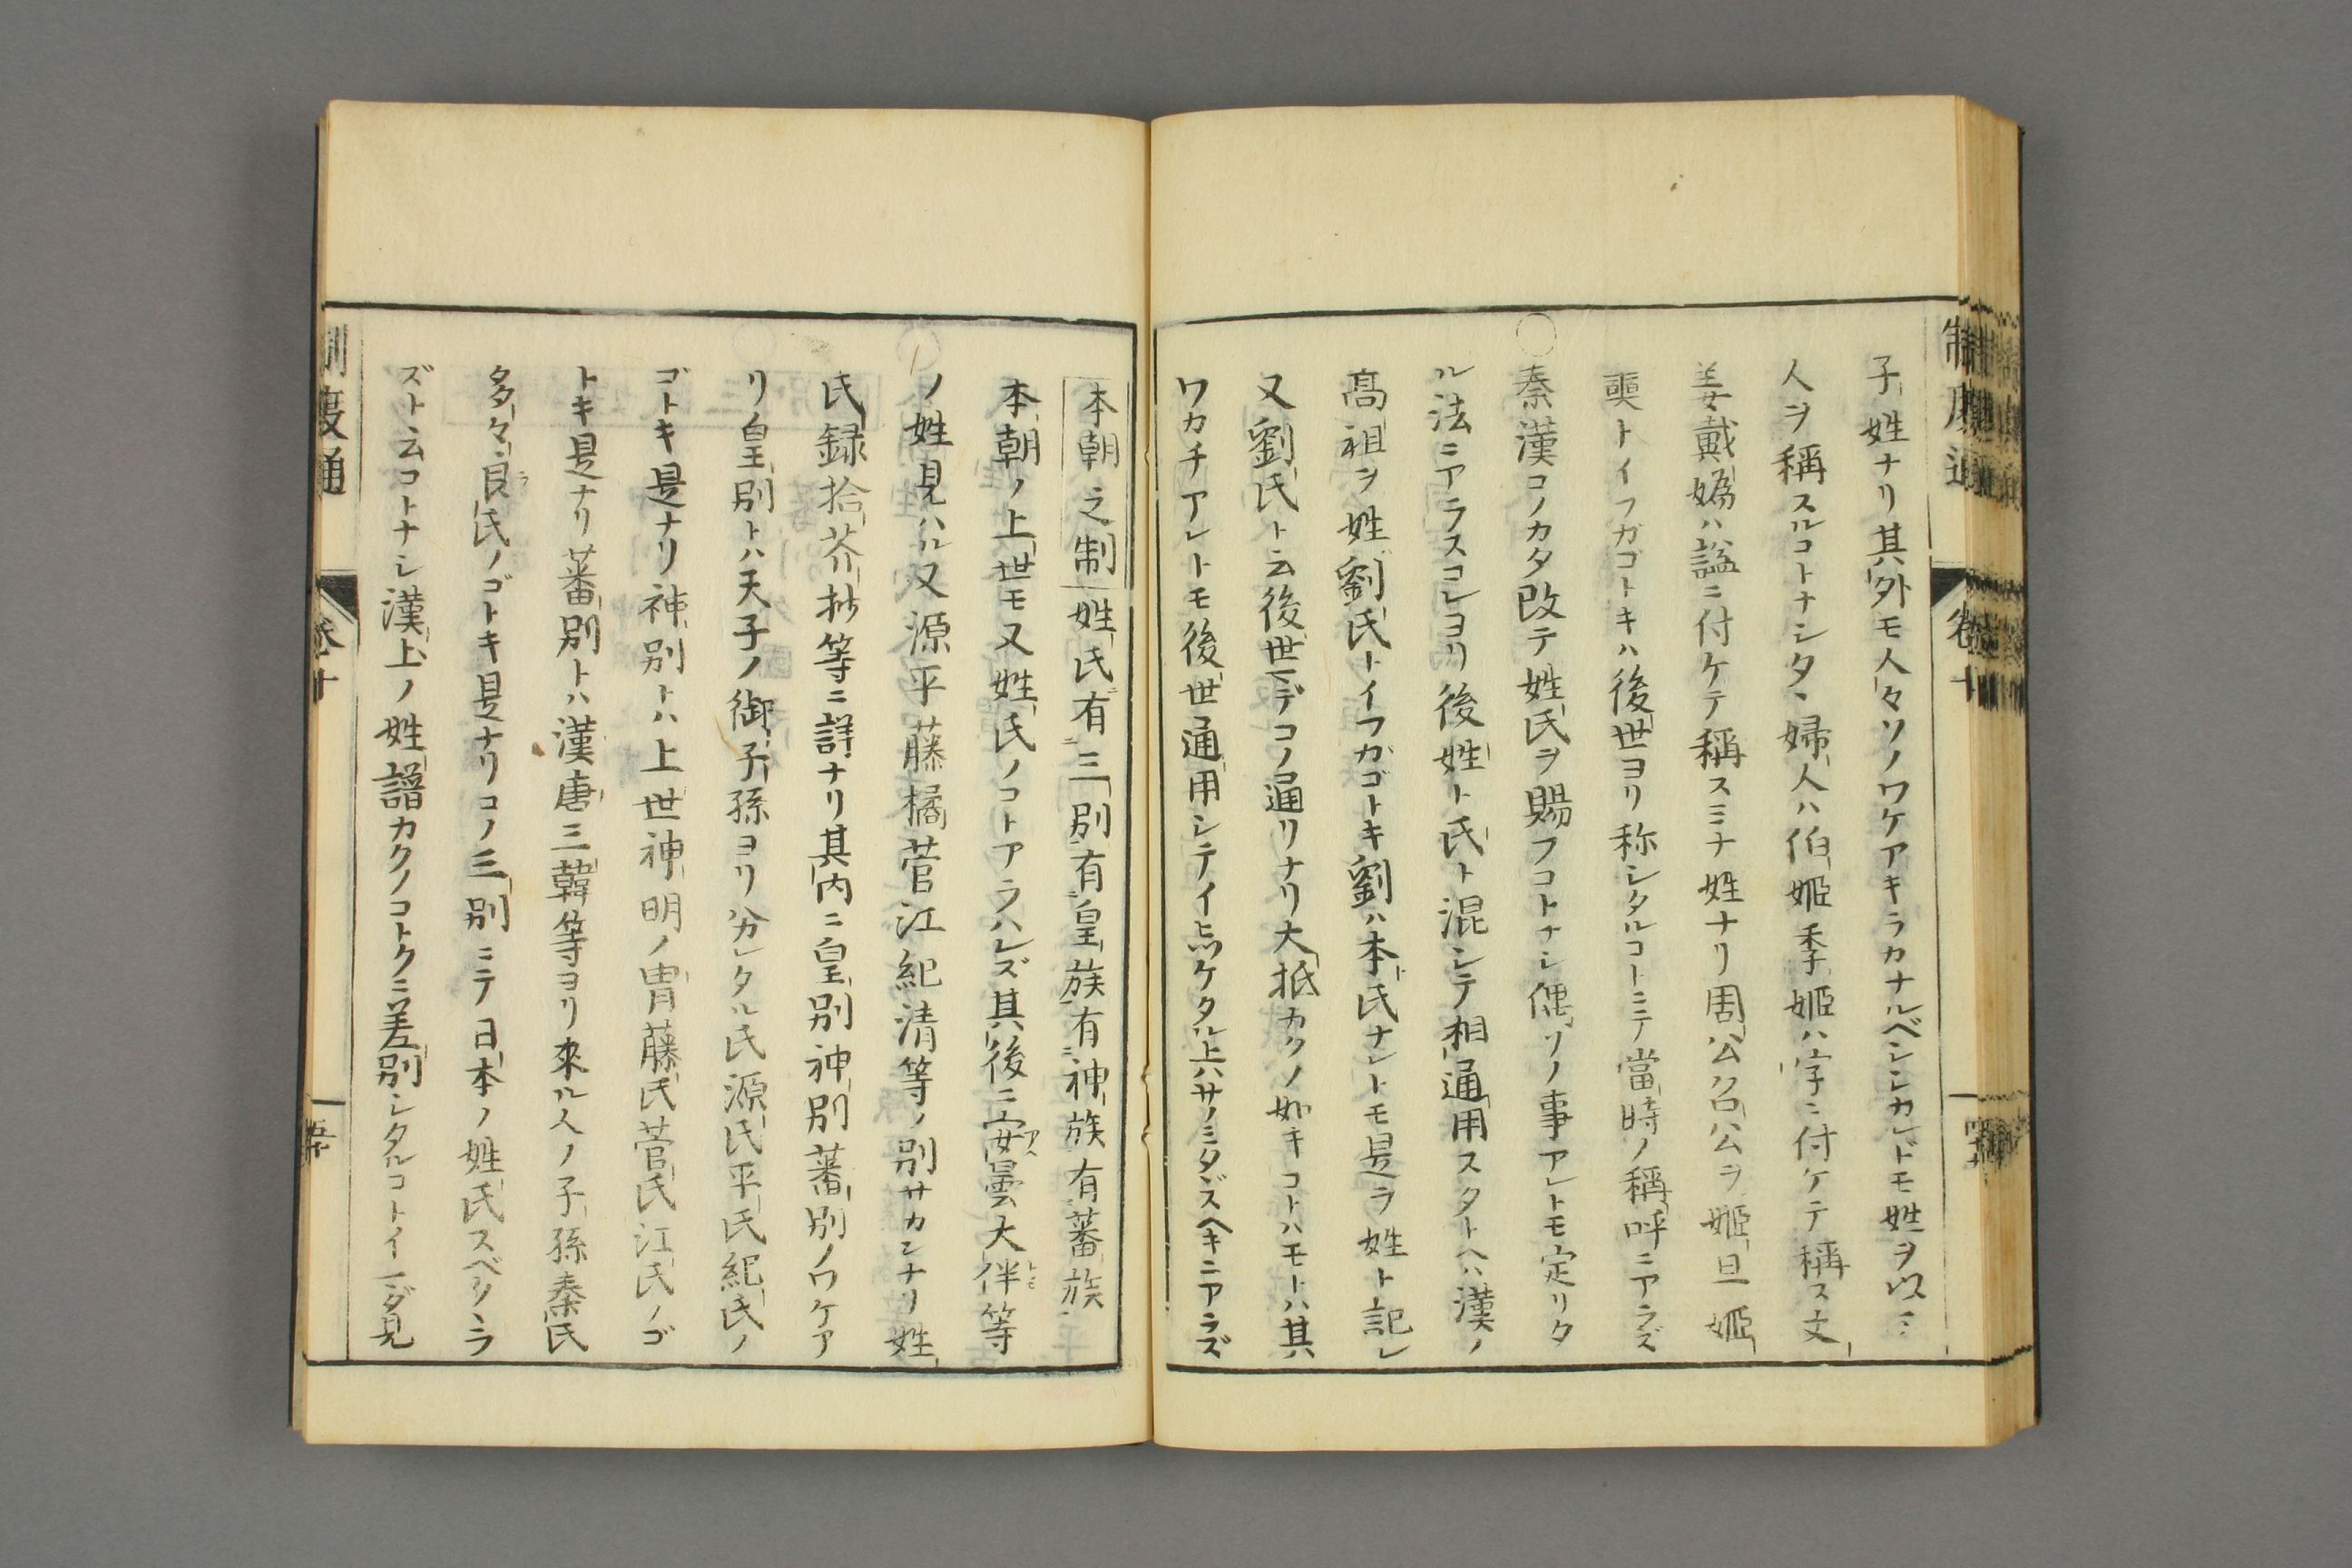 子姓ナリ其外モ人々ソノワケアキラカナルベシシカレドモ姓ヲ以テ
人ヲ稱スルコトナシタヽ婦人ハ伯姬季姬ハ字ニ付ケテ稱ス文
姜戴嬀ハ謚ニ付ケテ稱スミナ姓ナリ周公召公ヲ姬旦姬
奭トイフガゴトキハ後世ヨリ称シタルコトニテ當時ノ稱呼ニアラズ
○秦漢コノカタ改テ姓氏ヲ賜フコトナシ偶ソノ事アレトモ定リタ
ル法ニアラスコレヨリ後姓ト氏ト混シテ相通用スタトヘハ漢ノ
髙祖ヲ姓劉氏トイフガゴトキ劉ハ本氏ナレトモ是ヲ姓ト記シ
又劉氏ト云後世マデコノ通リナリ大抵カクノ如キコトハモトハ其
ワカチアレトモ後世通用シテイ
本朝之制 姓氏有三別有皇族有神族有蕃族
本朝ノ上世モ又姓氏ノコトアラハレズ其後ニ安曇大伴等
ノ姓見ハル又源平藤橘菅江紀清等ノ別サカンナリ姓
氏録拾芥抄等ニ詳ナリ其内ニ皇別神別蕃別ノワケア
リ皇別トハ天子ノ御子孫ヨリ分レタル氏源氏平氏紀氏ノ
ゴトキ是ナリ神別トハ上世神明ノ冑藤氏菅氏江氏ノゴ
トキ是ナリ蕃別トハ漢唐三韓等ヨリ來ル人ノ子孫秦氏
多々良氏ノゴトキ是ナリコノ三別ニテ日本ノ姓氏スベクヽラ
ズト云コトナシ漢上ノ姓譜カクノコトクニ差別シタルコトイマダ見
制度通
卷十
五十